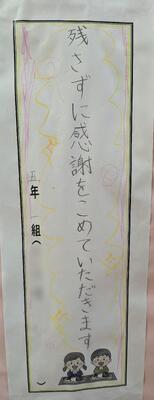 残さずに感謝をこめていただきます
五年一組（　　）